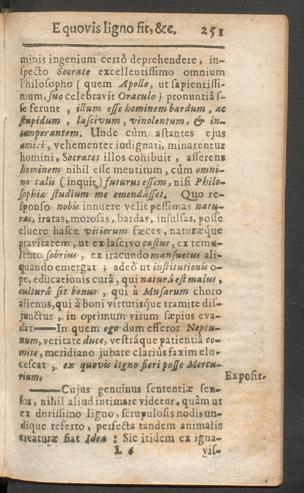 E quovis ligno fit, &c. 251
minis ingenium certò deprehendere, in-
specto Socrate excellentissimo omnium
Philosopho (quem Apollo, ut sapientissi-
mum, suo celebravit Oraculo) pronuntiâs-
se ferunt, illum esse hominem bardum, ac
stupidum, lascivum, vinolentum, & in-
temperantem. Unde cùm astantes ejus
amici, vehementer indignati, minarentur
homini, Socrates illos cohibuit, asserens
hominem nihil esse mentitum, cùm omni-
no talis (inquit) futurus essem, nisi Philo-
sophiæ studium me emendâsset. Quo re-
sponso nobis innuere velit pessimas natu-
ras, iratas, morosas, bardas, insulsas, posse
eluere hasce vitiorum fæces, naturæque
pravitatem, ut ex lascivo castus, ex temu-
lento sobrius, ex iracundo mansuetus ali-
quando emergat; adeò ut institutionis o-
pe, educationis curâ, qui naturâ est malus,
culturâ fit bonus, qui à Musarum choro
alienus, qui à boni virtutisque tramite dis-
junctus, in optimum virum sæpius eva-
dat—In quem ego dum esseror Neptu-
num, veritate duce, vestrâque patientiâ co-
mite, meridiano jubare clariùs faxim elu-
cescat, ex quovis ligno fieri posse Mercu-
rium.
Exposit.
—Cujus genuinus sententiæ sen-
sus, nihil aliud intimare videtur, quàm ut
ex durissimo ligno, scrupulosis nodis un-
dique referto, perfecta tandem animalis
creaturæ fiat Idea: Sic itidem ex igna-
L 6 vis-